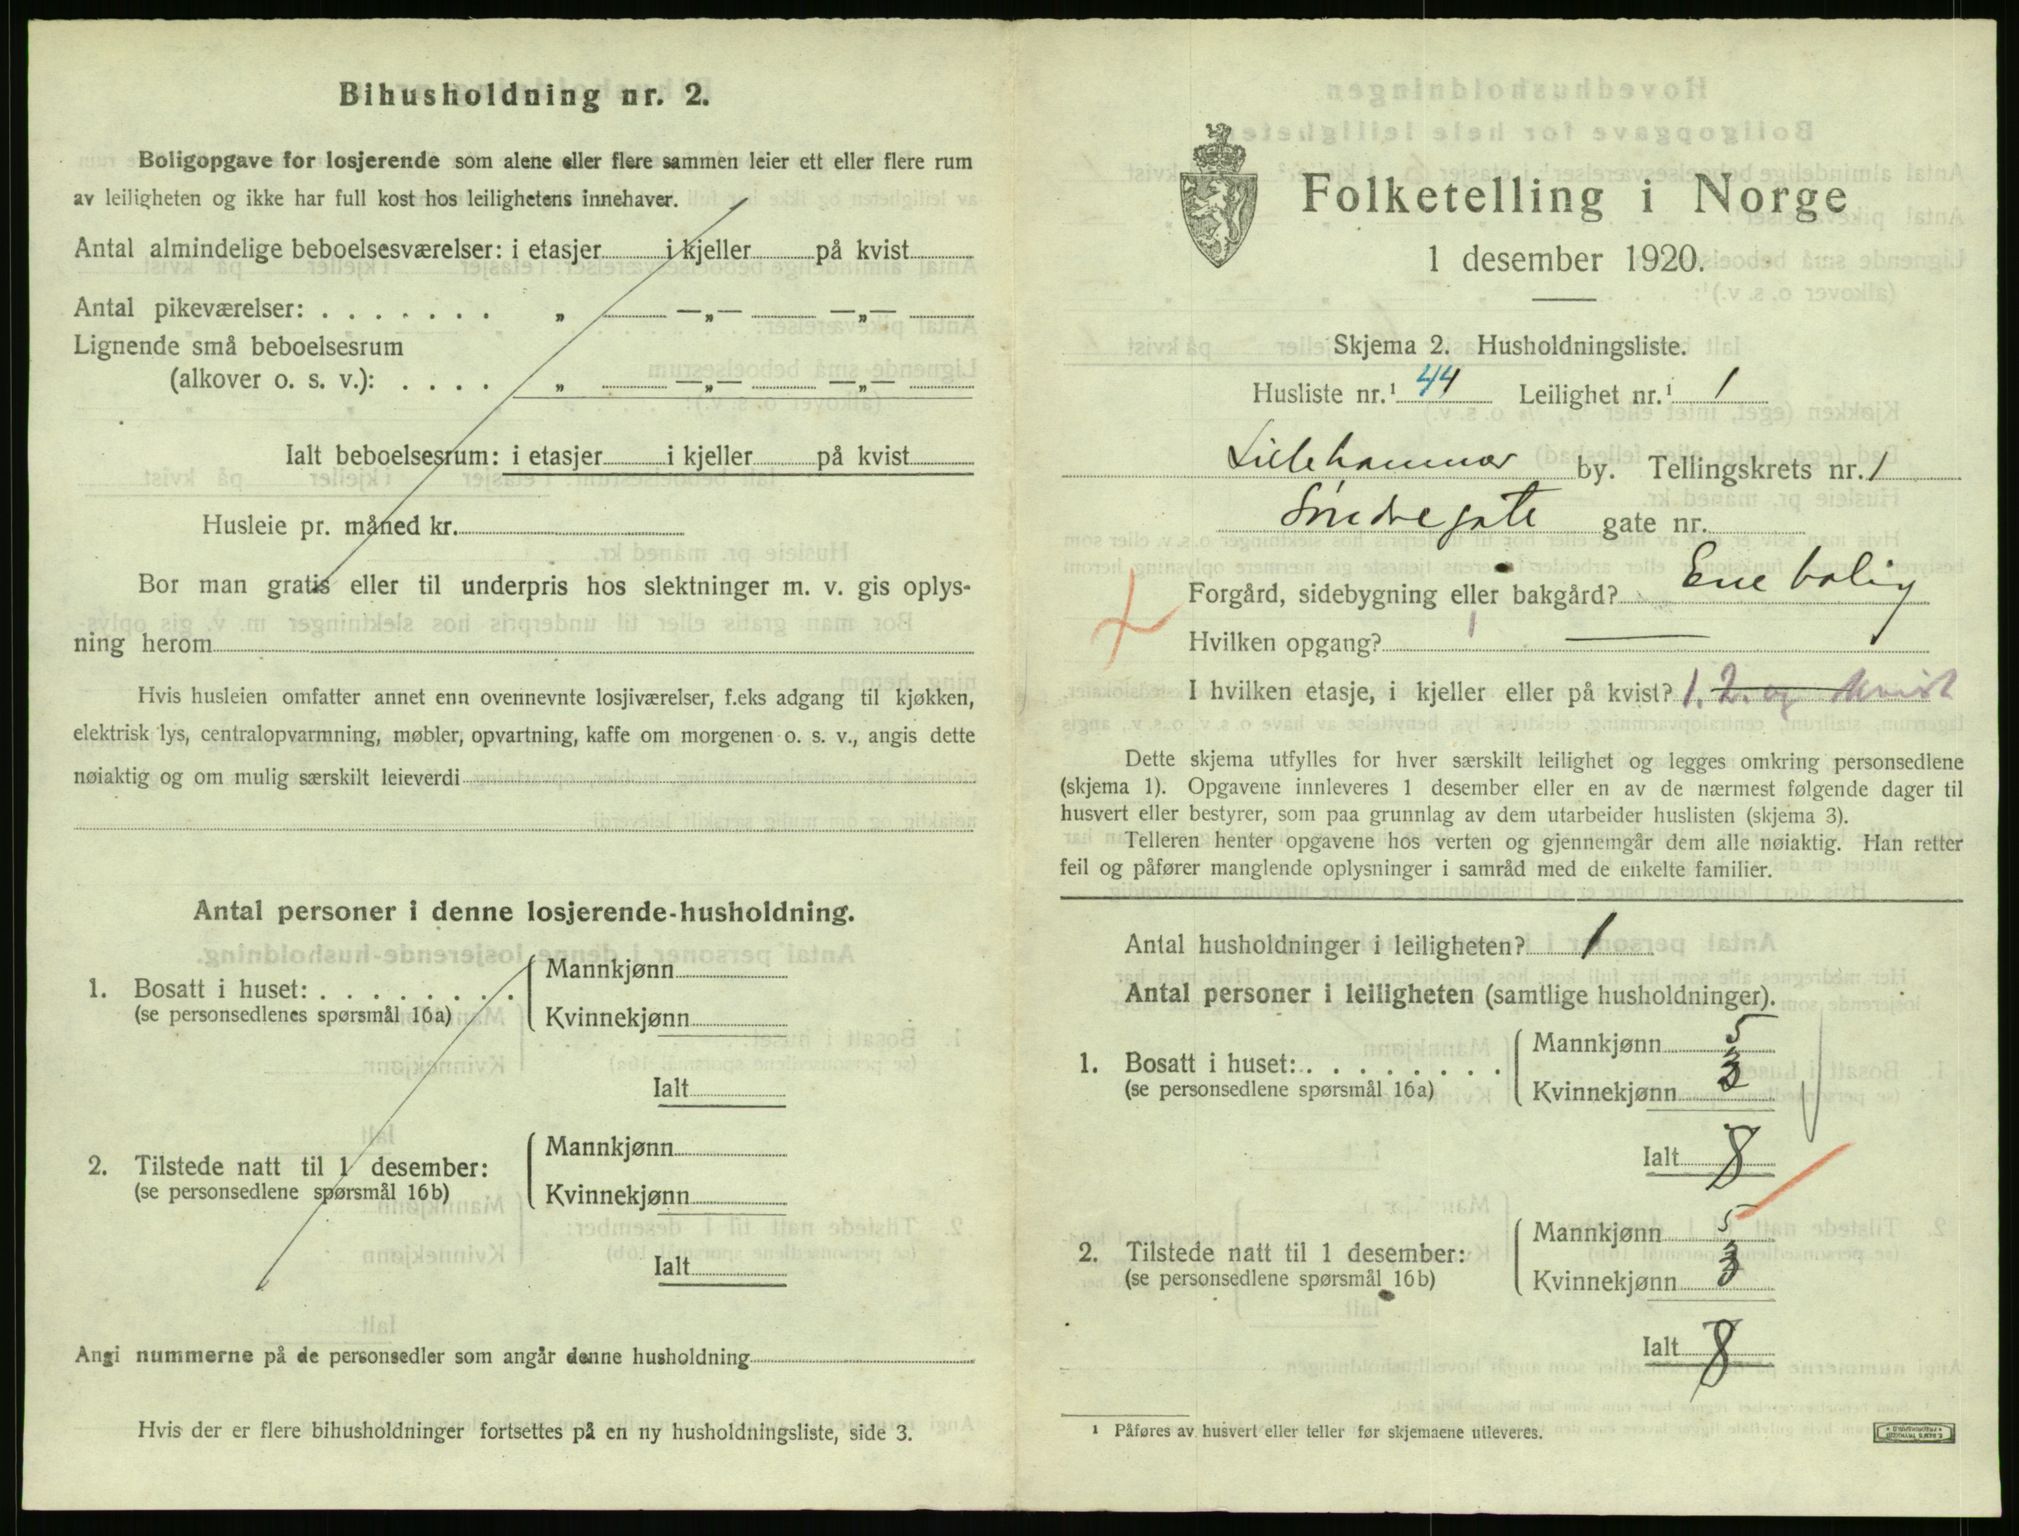 Bihusholdning nr. 2.
Boligopgave for losjerende som alene eller flere sammen leier ett eller flere rum
av leiligheten og ikke har full kost hos leilighetens innehaver.
Antal almindelige beboelsesværelser: i etasjer i kjeller på kvist
Antal pikeværelser: . . . . . . . „ —„— —„—
Lignende små beboelsesrum
(alkover o. s. v.): . . . . „ —„— —„—
Ialt beboelsesrum: i etasjer i kjeller på kvist
Husleie pr. måned kr.
Bor man gratis eller til underpris hos slektninger m. v. gis oplys-
ning herom
Hvis husleien omfatter annet enn ovennevnte losjiværelser, f.eks adgang til kjøkken,
elektrisk lys, centralopvarmning, møbler, opvartning, kaffe om morgenen o. s. v., angis dette
nøiaktig og om mulig særskilt leieverdi
Antal personer i denne losjerende-husholdning.
1. Bosatt i huset: . . . . . . . .
(se personsedlenes spørsmål 16a)
Mannkjønn
Kvinnekjønn
Ialt
2. Tilstede natt til 1 desember:
(se personsedlene spørsmål 16b)
Mannkjønn
Kvinnekjønn
Ialt
Angi nummerne på de personsedler som angår denne husholdning
Hvis der er flere bihusholdninger fortsettes på en ny husholdningsliste, side 3.
Folketelling i Norge
1 desember 1920.
Skjema 2. Husholdningsliste.
Husliste nr.¹ 44 Leilighet nr.¹ 1
Lillehammer by. Tellingskrets nr. 1
Søndregate gate nr.
Forgård, sidebygning eller bakgård? Ene bolig
Hvilken opgang? —
I hvilken etasje, i kjeller eller på kvist? 1. 2. og kvist
Dette skjema utfylles for hver særskilt leilighet og legges omkring personsedlene
(skjema 1). Opgavene innleveres 1 desember eller en av de nærmest følgende dager til
husvert eller bestyrer, som paa grunnlag av dem utarbeider huslisten (skjema 3).
Telleren henter opgavene hos verten og gjennemgår dem alle nøiaktig. Han retter
feil og påfører manglende oplysninger i samråd med de enkelte familier.
Antal husholdninger i leiligheten? 1
Antal personer i leiligheten (samtlige husholdninger).
1. Bosatt i huset: . . . . . . . .
(se personsedlene spørsmål 16a)
Mannkjønn 5
Kvinnekjønn 3
Ialt 8
2. Tilstede natt til 1 desember:
(se personsedlene spørsmål 16b)
Mannkjønn 5
Kvinnekjønn 3
Ialt 8
¹ Påføres av husvert eller teller før skjemaene utleveres.